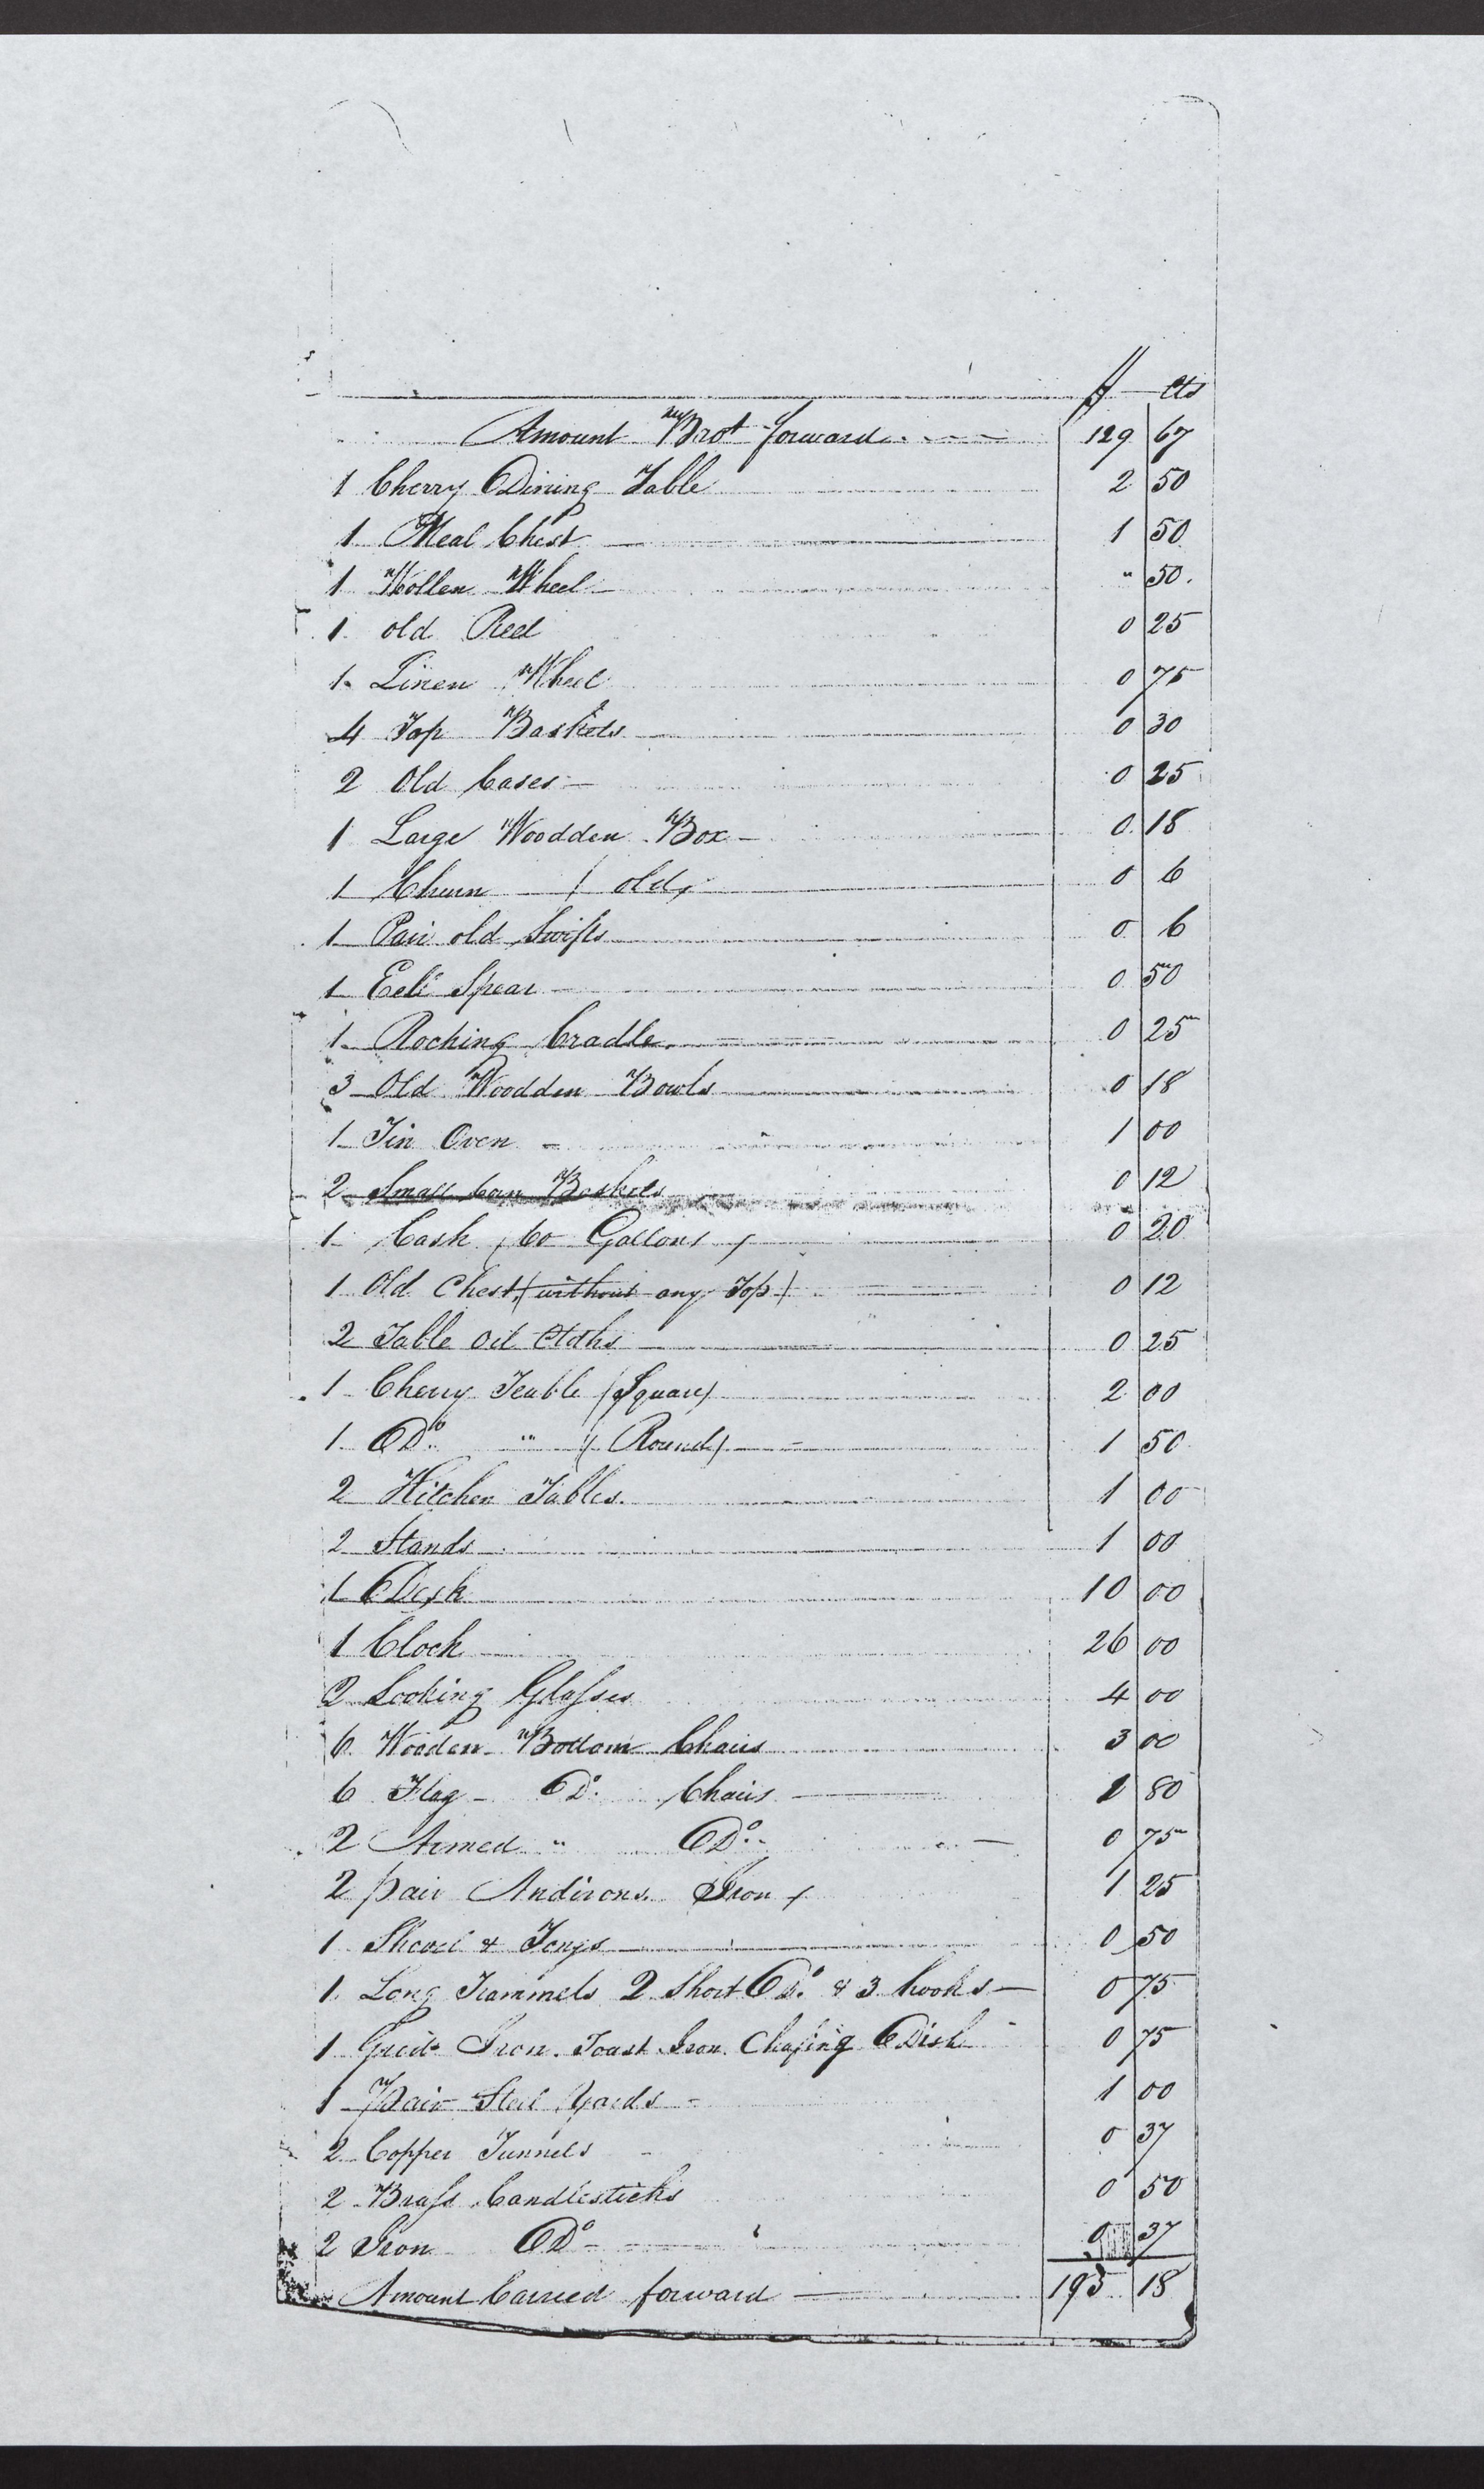 $ cts
Amount Brot forward 129 67
1 Cherry Dining Table 2 50
1 Meal Chest 1 50
1 Wollen Wheel " 50
1 old Reel 0 25
1 Linen Wheel 0 75
4 Tap Baskets 0 30
2 Old Cases 0 25
1 Large Woodden Box 0 18
1 Churn ( old ) 0 6
1 Pair old Swifts 0 6
1 Eele Spear 0 50
1 Rocking Cradle 0 25
3 Old Woodden Bowls 0 18
1 Tin Oven 1 00
2 Small Corn Baskets 0 12
1 Cask ( 60 Gallons ) 0 20
1 Old Chest (without any Top) 0 12
2 Table Oil Cloths 0 25
1 Cherry Teable (Square) 2 00
1 Do " ( Round ) 1 50
2 Kitchen Tables 1 00
2 Stands 1 00
1 Desk 10 00
1 Clock 26 00
2 Looking Glasses 4 00
6 Wooden Bottom Chairs 3 00
6 Flag Do. Chairs 1 80
2 Armed " Do. 0 75
2 pair Andirons. Iron 1 25
1 Shovel & Tongs 0 50
1 Long Trammels 2 Short Do. & 3 hooks 0 75
1 Grid Iron. Toast Iron. Chafing Dish 0 75
1 Pair Steel Yards 1 00
2 Copper Tunnels 0 37
2 Brass Candlesticks 0 50
2 Iron Do 0 37
Amount Carried forward 195 18